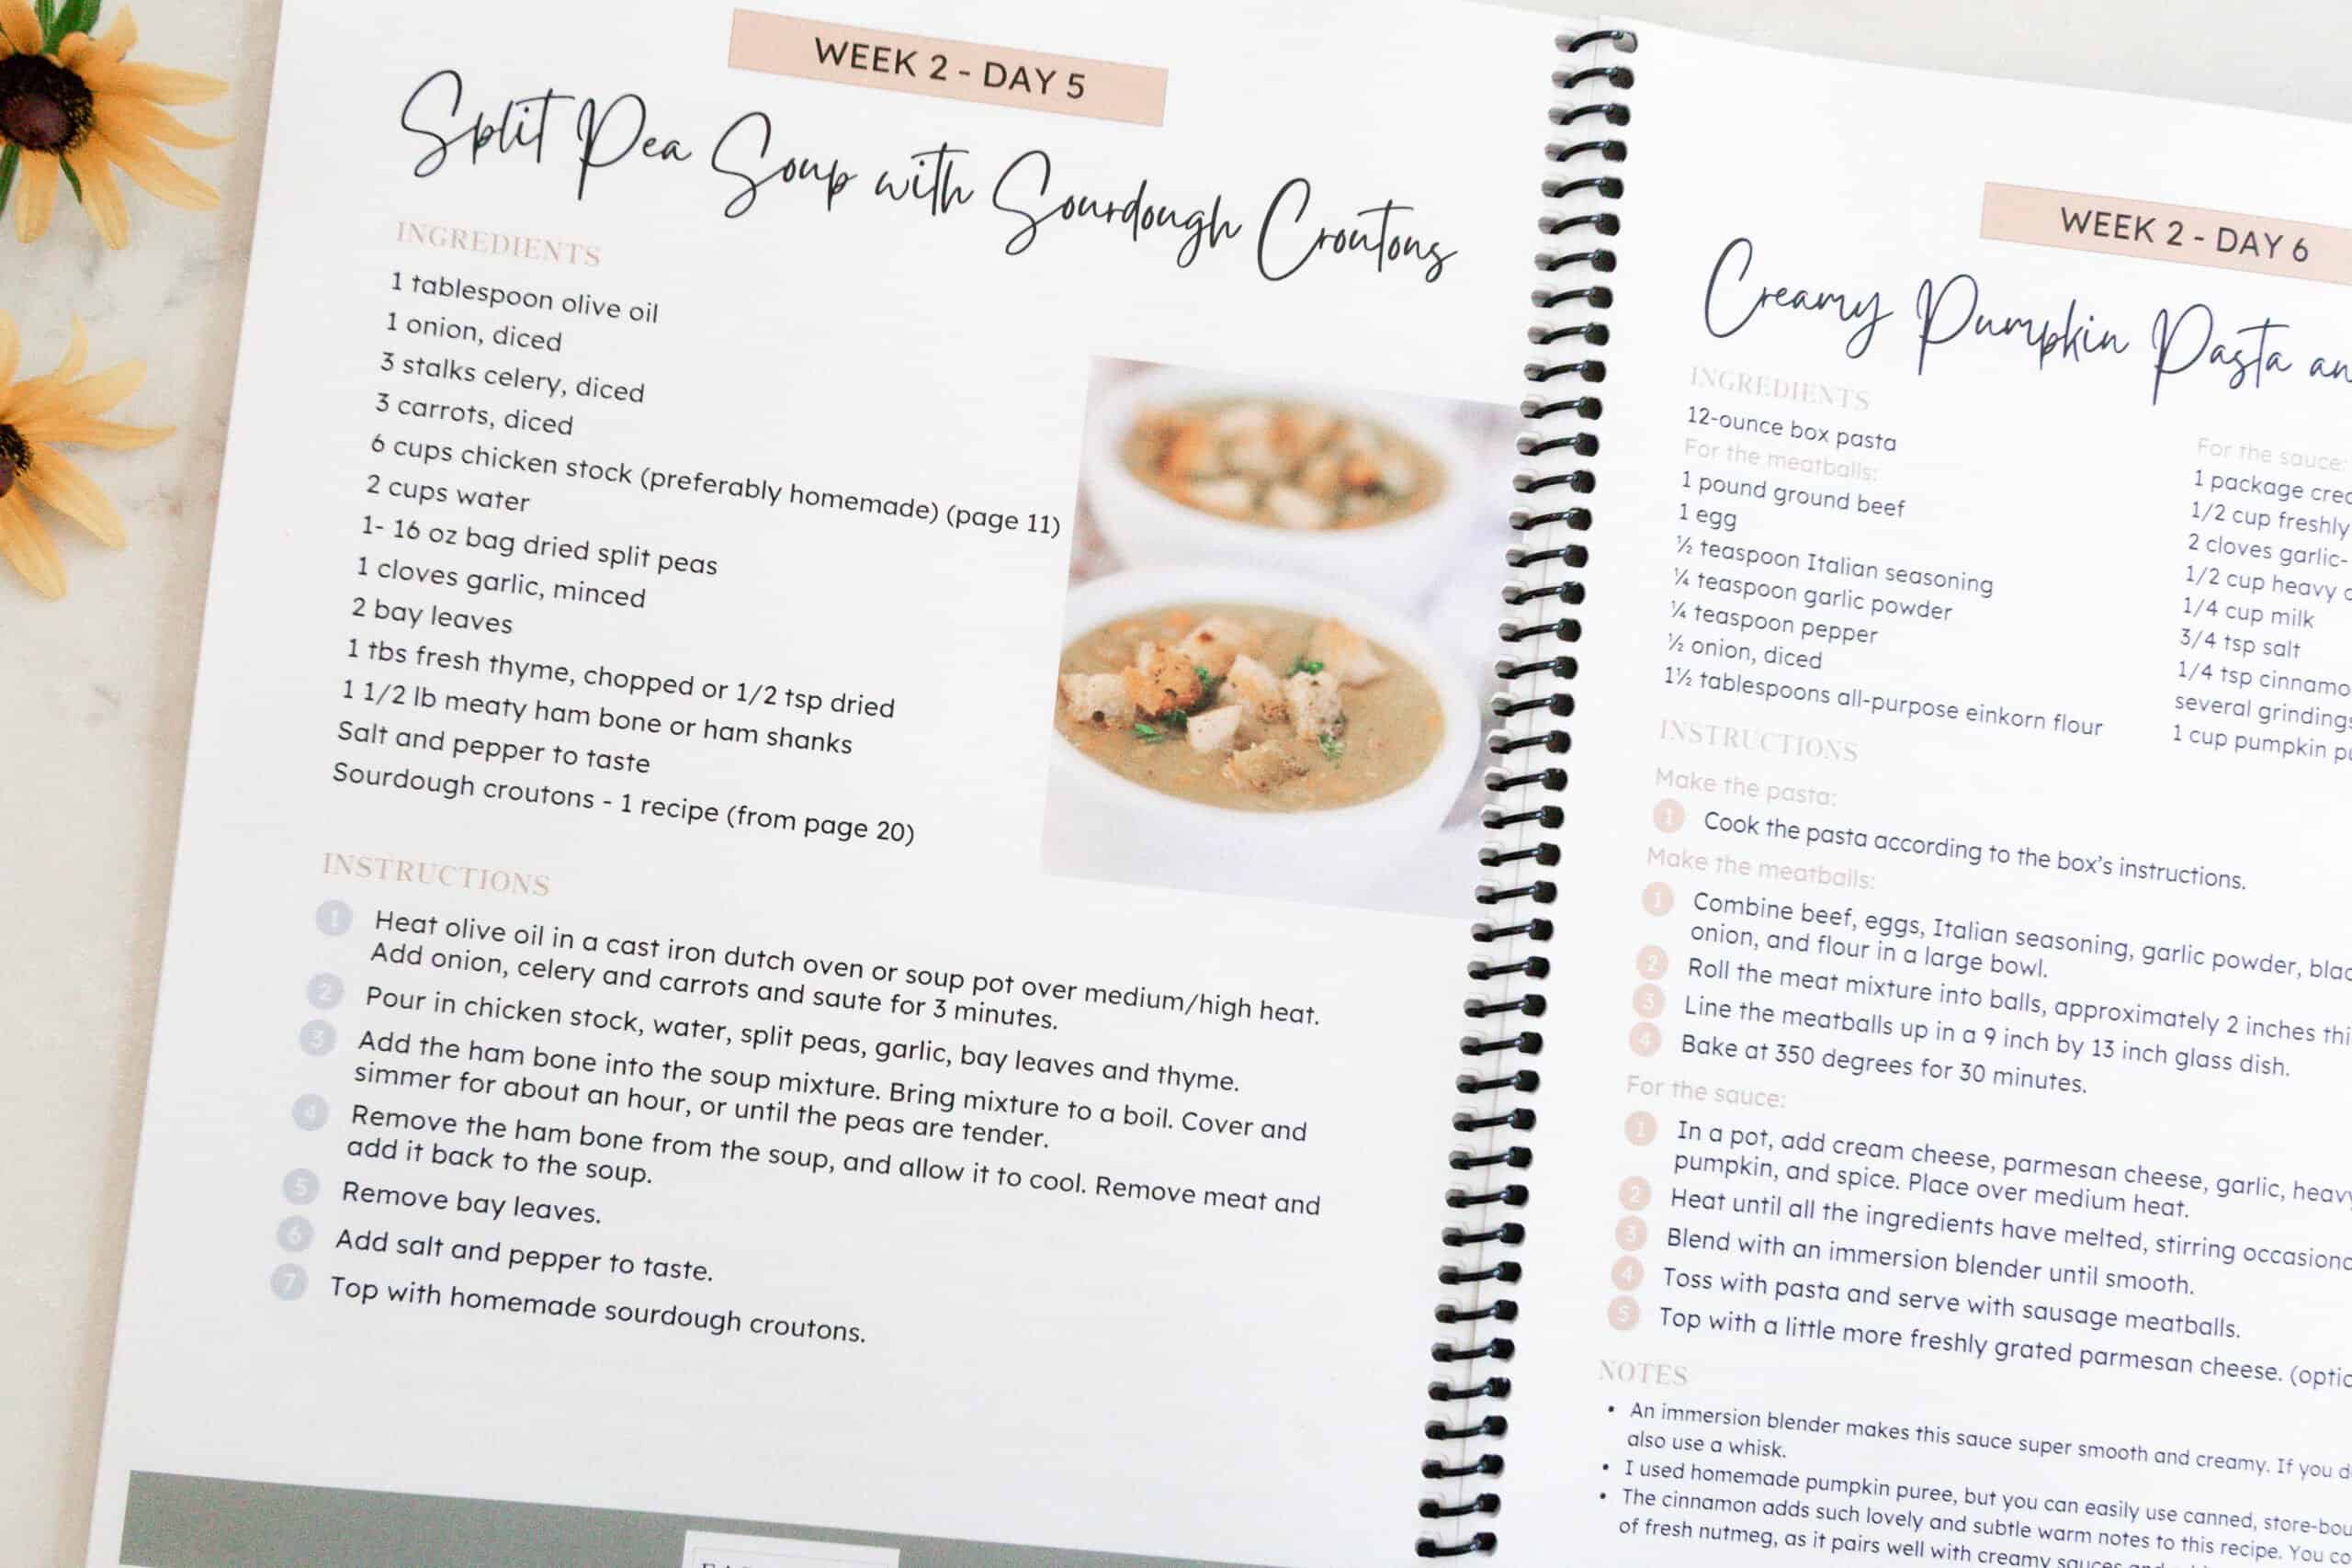 WEEK 2 - DAY 5
Split Pea Soup with Sourdough Croutons
INGREDIENTS
1 tablespoon olive oil
1 onion, diced
3 stalks celery, diced
3 carrots, diced
6 cups chicken stock (preferably homemade) (page 11)
2 cups water
1- 16 oz bag dried split peas
1 cloves garlic, minced
2 bay leaves
1 tbs fresh thyme, chopped or 1/2 tsp dried
1 1/2 lb meaty ham bone or ham shanks
Salt and pepper to taste
Sourdough croutons - 1 recipe (from page 20)
INSTRUCTIONS
1 Heat olive oil in a cast iron dutch oven or soup pot over medium/high heat.
Add onion, celery and carrots and saute for 3 minutes.
2 Pour in chicken stock, water, split peas, garlic, bay leaves and thyme.
3 Add the ham bone into the soup mixture. Bring mixture to a boil. Cover and
simmer for about an hour, or until the peas are tender.
4 Remove the ham bone from the soup, and allow it to cool. Remove meat and
add it back to the soup.
5 Remove bay leaves.
6 Add salt and pepper to taste.
7 Top with homemade sourdough croutons.
WEEK 2 - DAY 6
Creamy Pumpkin Pasta
INGREDIENTS
12-ounce box pasta
For the meatballs:
1 pound ground beef
1 egg
½ teaspoon Italian seasoning
¼ teaspoon garlic powder
¼ teaspoon pepper
½ onion, diced
1½ tablespoons all-purpose einkorn flour
For the sauce:
1 package
1/2 cup freshly
2 cloves garlic-
1/2 cup heavy
1/4 cup milk
3/4 tsp salt
1/4 tsp
several
1 cup pumpkin
INSTRUCTIONS
Make the pasta:
1 Cook the pasta according to the box's instructions.
Make the meatballs:
1 Combine beef, eggs, Italian seasoning, garlic powder,
onion, and flour in a large bowl.
2 Roll the meat mixture into balls, approximately 2 inches
3 Line the meatballs up in a 9 inch by 13 inch glass dish.
4 Bake at 350 degrees for 30 minutes.
For the sauce:
1 In a pot, add cream cheese, parmesan cheese, garlic,
pumpkin, and spice. Place over medium heat.
2 Heat until all the ingredients have melted, stirring
3 Blend with an immersion blender until smooth.
4 Toss with pasta and serve with sausage meatballs.
5 Top with a little more freshly grated parmesan cheese.
NOTES
• An immersion blender makes this sauce super smooth and creamy. If you
also use a whisk.
• I used homemade pumpkin puree, but you can easily use canned,
• The cinnamon adds such lovely and subtle warm notes to this recipe. You
of fresh nutmeg, as it pairs well with creamy sauces